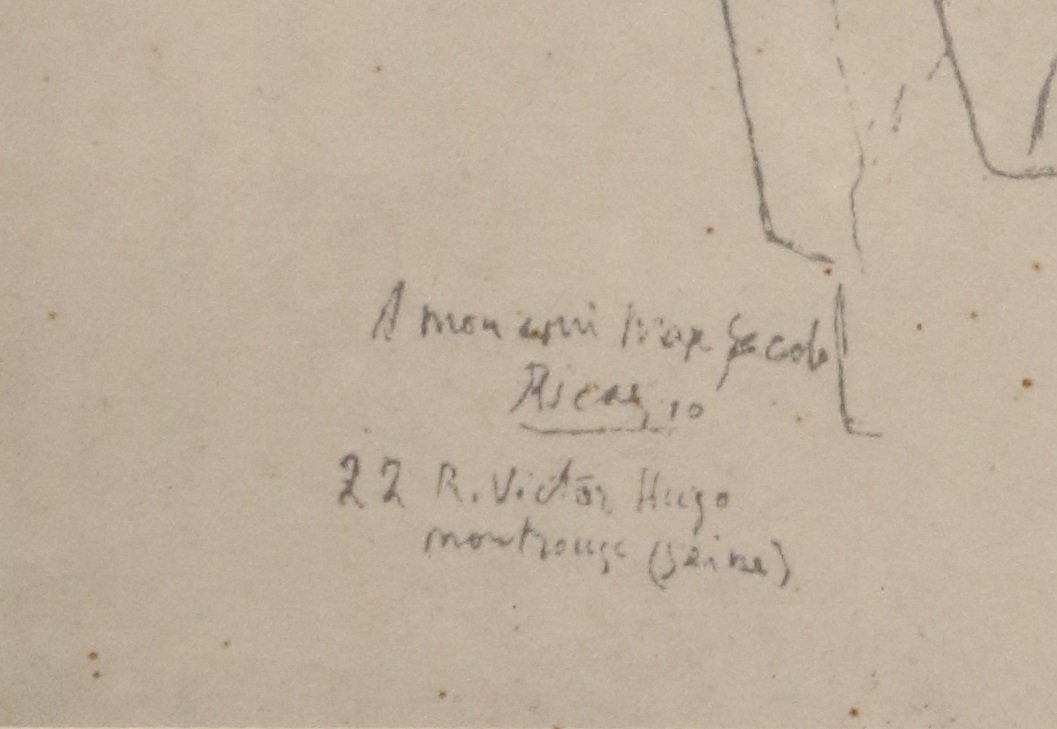 A mon ami Max Jacob
Picasso
22 R. Victor Hugo
montrouge (Seine)